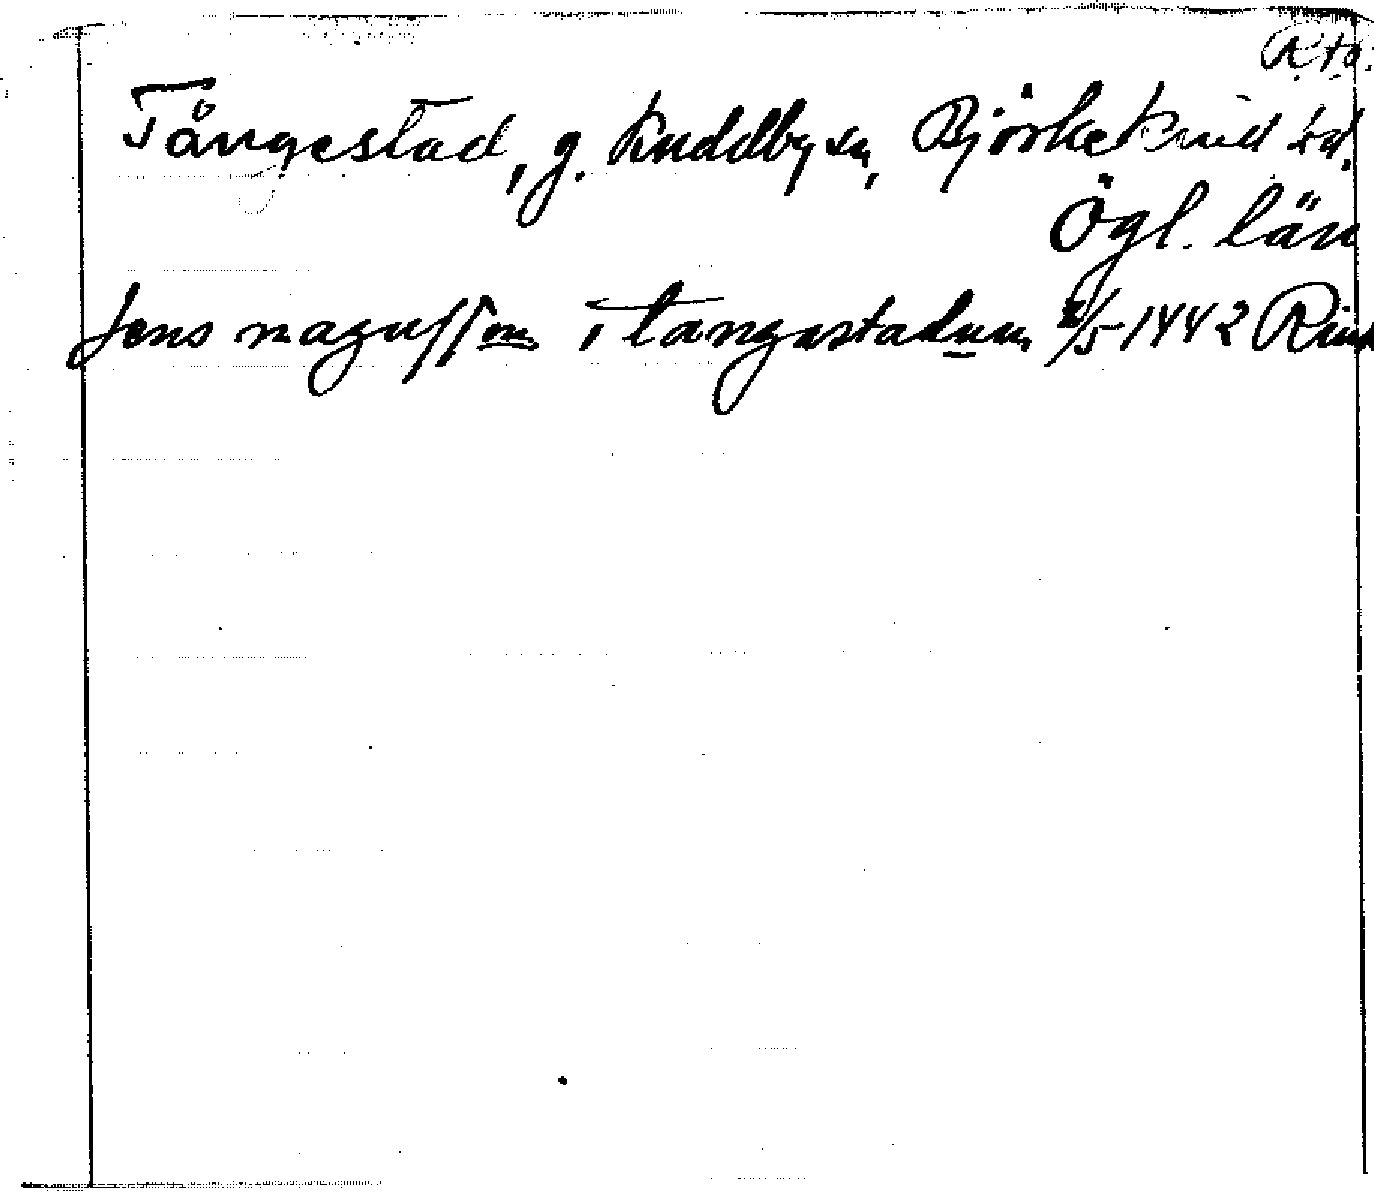 R.to.
Tångestad, g. Kuddby sn, Björkekind hd.
Ögl. län
Jens magusson i tangastadum /5 1442 Rink